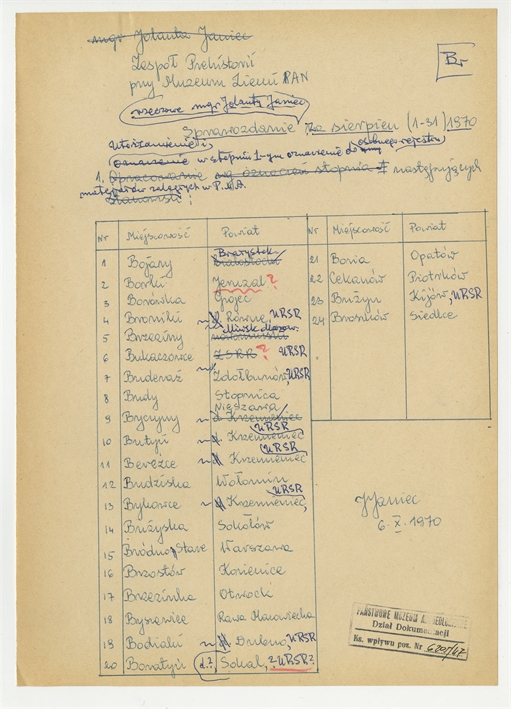 mgr Jolanta Janiec
Zespół Prehistorii
przy Muzeum Ziemi PAN
Br
rzeczowe mgr Jolanty Janiec
Sprawozdanie za sierpień (1-31) 1970
Utożsamienie i
oznaczenie w stopniu 1-ym oznaczenie do
1. Opracowanie następujących
materiałów zalegających w P.M.A.
Nr Miejscowość Powiat
1 Bojany Białystok
2 Borki Jeruzal ?
3 Borówka Grójec
4 Broniki Równe, URSR
5 Brzeziny Mińsk Mazow.
6 Bukaczowce ZSRR ? URSR
7 Buderaż Zdołbunów, URSR
8 Budy Stopnica
9 Byczyny Nieszawa Krzemieniec
10 Butyń Krzemieniec URSR
11 Berezce Krzemieniec URSR
12 Budziska Wołomin
13 Bykowce Krzemieniec, URSR
14 Bużyska Sokołów
15 Bródno Stare Warszawa
16 Brzostów Kozienice
17 Brzezinka Otwock
18 Byszewice Rawa Mazowiecka
19 Bodiaki Dubno, URSR
20 Bonatyń (d.?) Sokal, ? URSR ?
Nr Miejscowość Powiat
21 Boria Opatów
22 Cekanów Piotrków
23 Bużyn Kijów, URSR
24 Broszków Siedlce
JJaniec
6. X. 1970
PAŃSTWOWE MUZEUM ARCHEOLOGICZNE
Dział Dokumentacji
Ks. wpływu poz. Nr